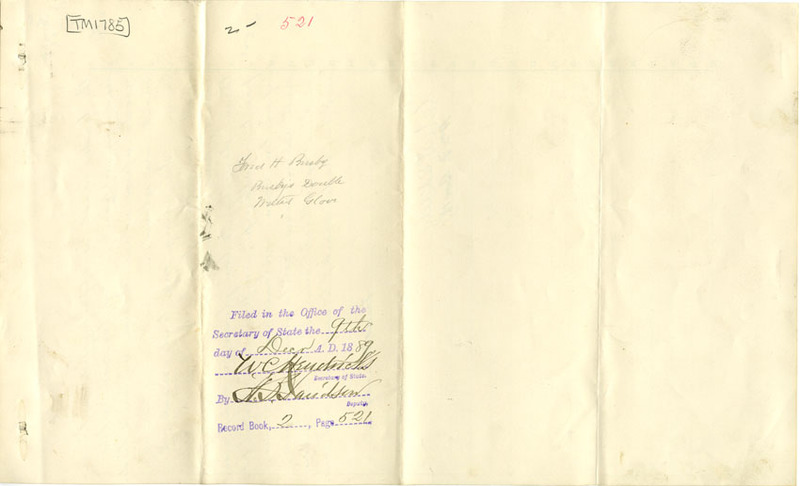 TM1785
2 - 521
H Busby
Busby's Double
Welted Glove
Filed in the Office of the
Secretary of State the 9th
day of Dec A. D. 1889
W C Hendricks
Secretary of State.
By Davidson
Deputy.
Record Book, 2, Page 521